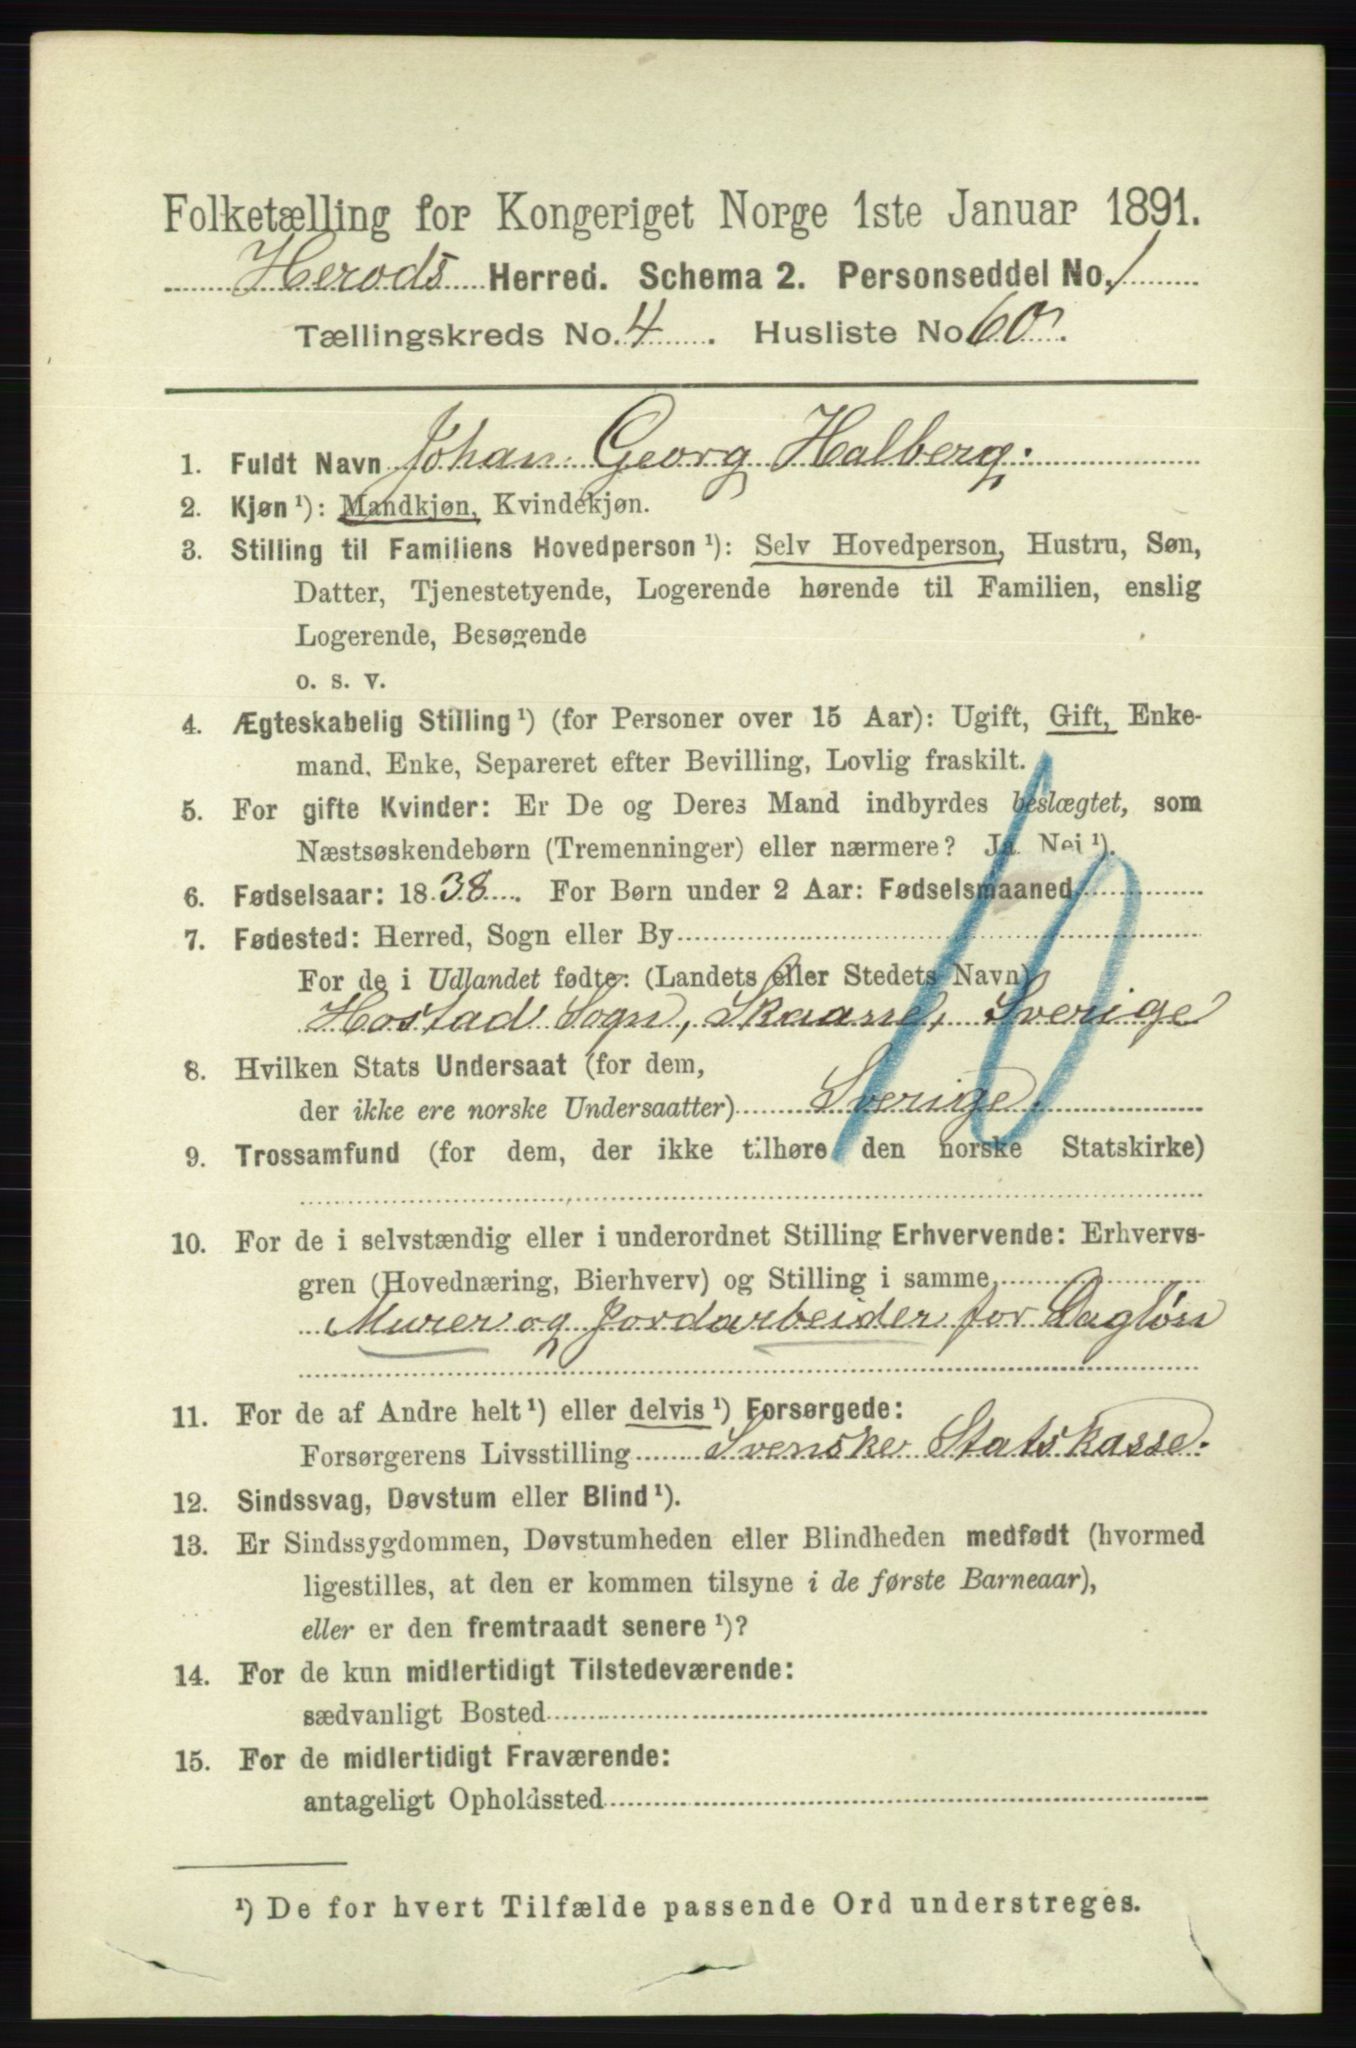 Folketælling for Kongeriget Norge 1ste Januar 1891.
Herøds Herred. Schema 2. Personseddel No. 1
Tællingskreds No. 4. Husliste No 60.
1. Fuldt Navn Johan Georg Halberg.
2. Kjøn ¹): Mandkjøn, Kvindekjøn.
3. Stilling til Familiens Hovedperson ¹): Selv Hovedperson, Hustru, Søn,
Datter, Tjenestetyende, Logerende hørende til Familien, enslig
Logerende, Besøgende
o. s. v.
4. Ægteskabelig Stilling ¹) (for Personer over 15 Aar): Ugift, Gift, Enke-
mand, Enke, Separeret efter Bevilling, Lovlig fraskilt.
5. For gifte Kvinder: Er De og Deres Mand indbyrdes beslægtet, som
Næstsøskendebørn (Tremenninger) eller nærmere? Ja. Nei ¹).
6. Fødselsaar: 1838. For Børn under 2 Aar: Fødselsmaaned
7. Fødested: Herred, Sogn eller By
For de i Udlandet fødte: (Landets eller Stedets Navn)
Hostad Sogn, Skaane, Sverige
8. Hvilken Stats Undersaat (for dem,
der ikke ere norske Undersaatter) Sverige.
10
9. Trossamfund (for dem, der ikke tilhøre den norske Statskirke)
10. For de i selvstændig eller i underordnet Stilling Erhvervende: Erhvervs-
gren (Hovednæring, Bierhverv) og Stilling i samme
Murer og Jordarbeider for Dagløn
11. For de af Andre helt ¹) eller delvis ¹) Forsørgede:
Forsørgerens Livsstilling Svenske Statskasse.
12. Sindssvag, Døvstum eller Blind ¹).
13. Er Sindssygdommen, Døvstumheden eller Blindheden medfødt (hvormed
ligestilles, at den er kommen tilsyne i de første Barneaar),
eller er den fremtraadt senere ¹)?
14. For de kun midlertidigt Tilstedeværende:
sædvanligt Bosted
15. For de midlertidigt Fraværende:
antageligt Opholdssted
¹) De for hvert Tilfælde passende Ord understreges.